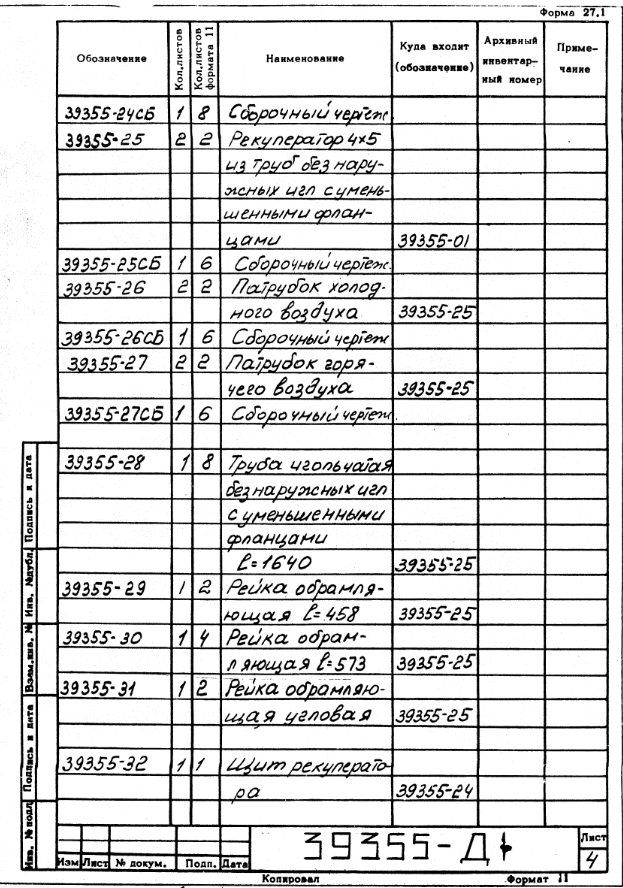 Форма 27.1
Обозначение Кол.листов Кол.листов формата 11 Наименование Куда входит (обозначение) Архивный инвентарный номер Примечание
39355-24СБ 1 8 Сборочный чертеж
39355-25 2 2 Рекуператор 4х5
из труб без нару-
жных игл с умень-
шенными флан-
цами 39355-01
39355-25СБ 1 6 Сборочный чертеж.
39355-26 2 2 Патрубок холод-
ного воздуха 39355-25
39355-26СБ 1 6 Сборочный чертеж
39355-27 2 2 Патрубок горя-
чего воздуха 39355-25
39355-27СБ 1 6 Сборочный чертеж
39355-28 1 8 Труба игольчатая
без наружных игл
с уменьшенными
фланцами
ℓ=1640 39355-25
39355-29 1 2 Рейка обрамля-
ющая ℓ=458 39355-25
39355-30 1 4 Рейка обрам-
ляющая ℓ=573 39355-25
39355-31 1 2 Рейка обрамляю-
щая угловая 39355-25
39355-32 1 1 Щит рекуперато-
ра 39355-24
Инв. № подл. Подпись и дата Взам.инв. № Инв. №дубл. Подпись и дата
39355-Д1
Лист
4
Изм Лист № докум. Подп. Дата
Копировал Формат 11